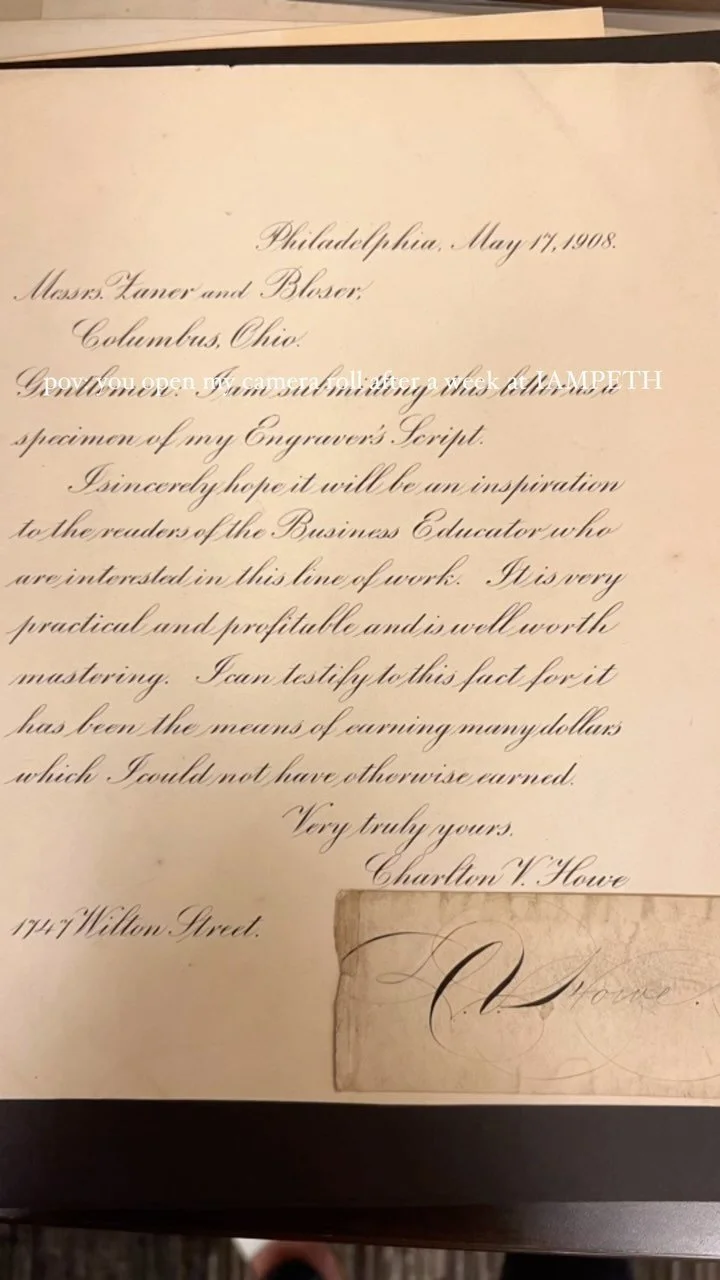 Philadelphia, May 17, 1908.
Messrs. Zaner and Bloser,
Columbus, Ohio.
Gentlemen: I am submitting this letter as a
pov: you open my camera roll after a week at IAMPETH
specimen of my Engraver's Script.
I sincerely hope it will be an inspiration
to the readers of the Business Educator who
are interested in this line of work. It is very
practical and profitable and is well worth
mastering. I can testify to this fact for it
has been the means of earning many dollars
which I could not have otherwise earned.
Very truly yours.
Charlton V. Howe
1747 Wilton Street.
C. V. Howe.